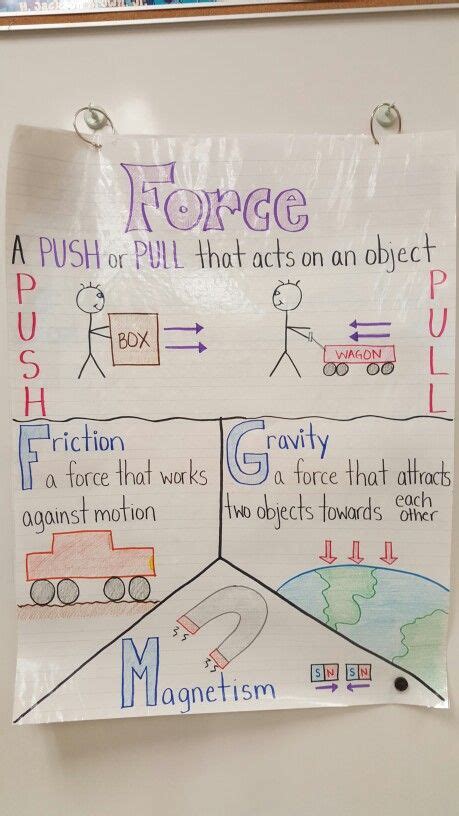 Force
A PUSH or PULL that acts on an object
PUSH
BOX
WAGON
PULL
Friction
a force that works
against motion
Gravity
a force that attracts
two objects towards each other
Magnetism
S N S N